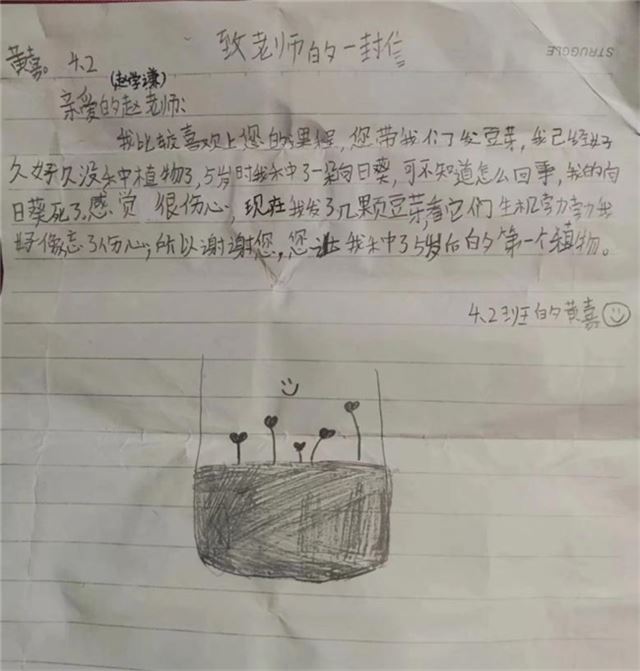 致老师的一封信
STRUGGLE
黄嘉。 4.2
(赵学谦)
亲爱的赵老师:
我比较喜欢上您的课程,您带我们了发豆芽,我已经好
久好久没种植物了,5岁时我种了一颗向日葵,可不知道怎么回事,我的向
日葵死了,感觉 很伤心,现在我发了几颗豆芽,看它们生机勃勃我
好像忘了伤心,所以谢谢您,您让我种了5岁后的第一个植物。
4.2班的黄嘉